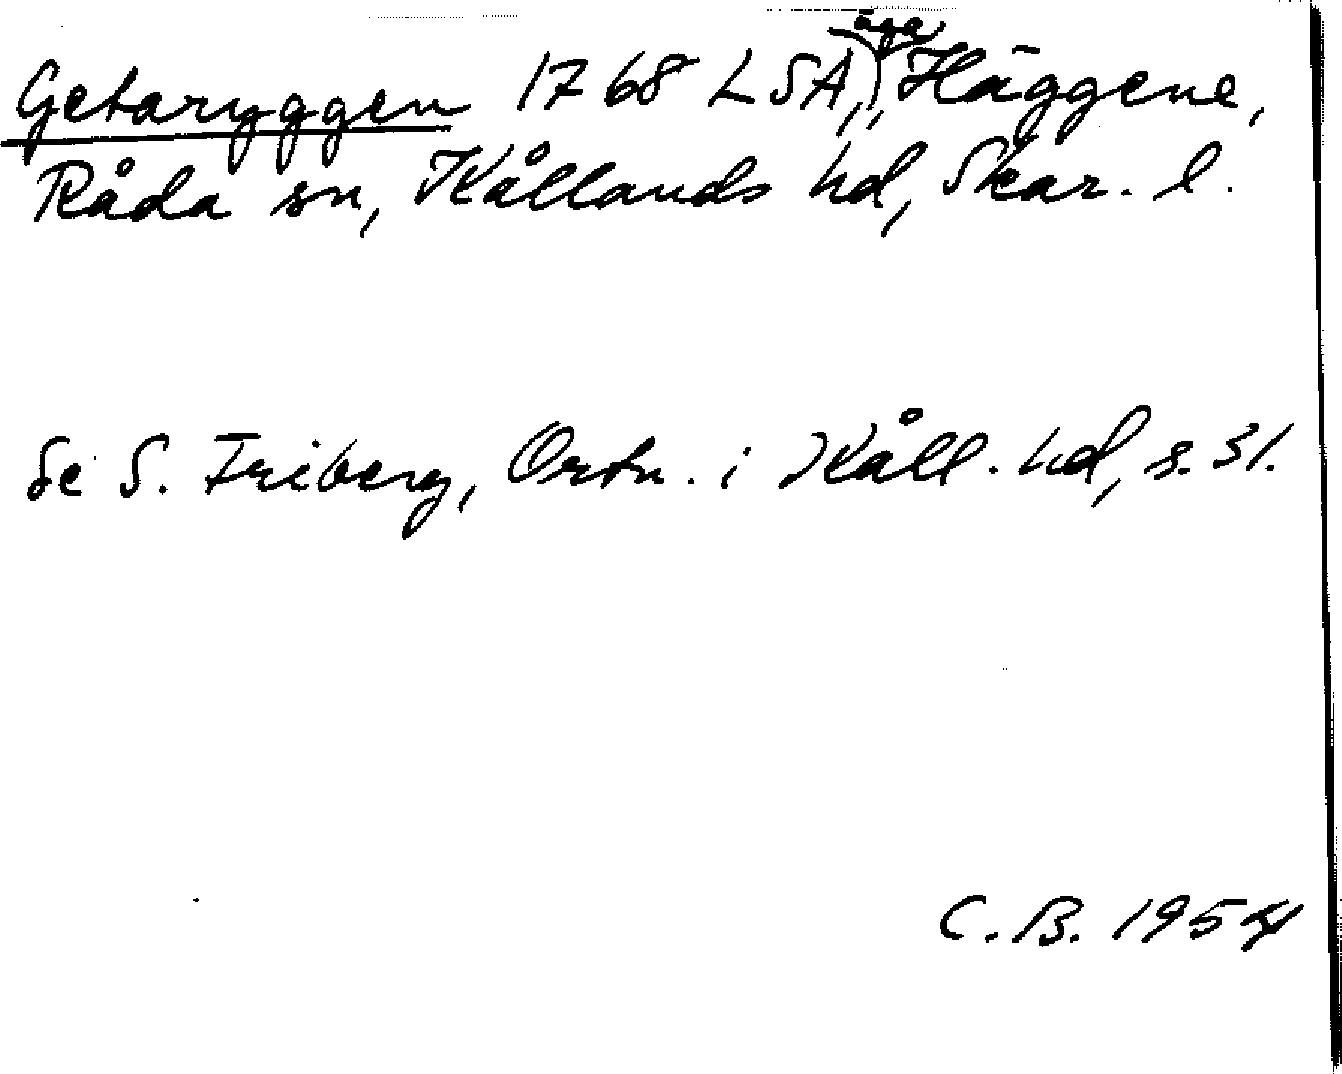 Getaryggen 1768 LSA, äga, Häggene,
Råda sn, Kållands hd, Skar. l.
Se S. Friberg, Ortn. i Kåll. hd, s. 31.
C. B. 1954